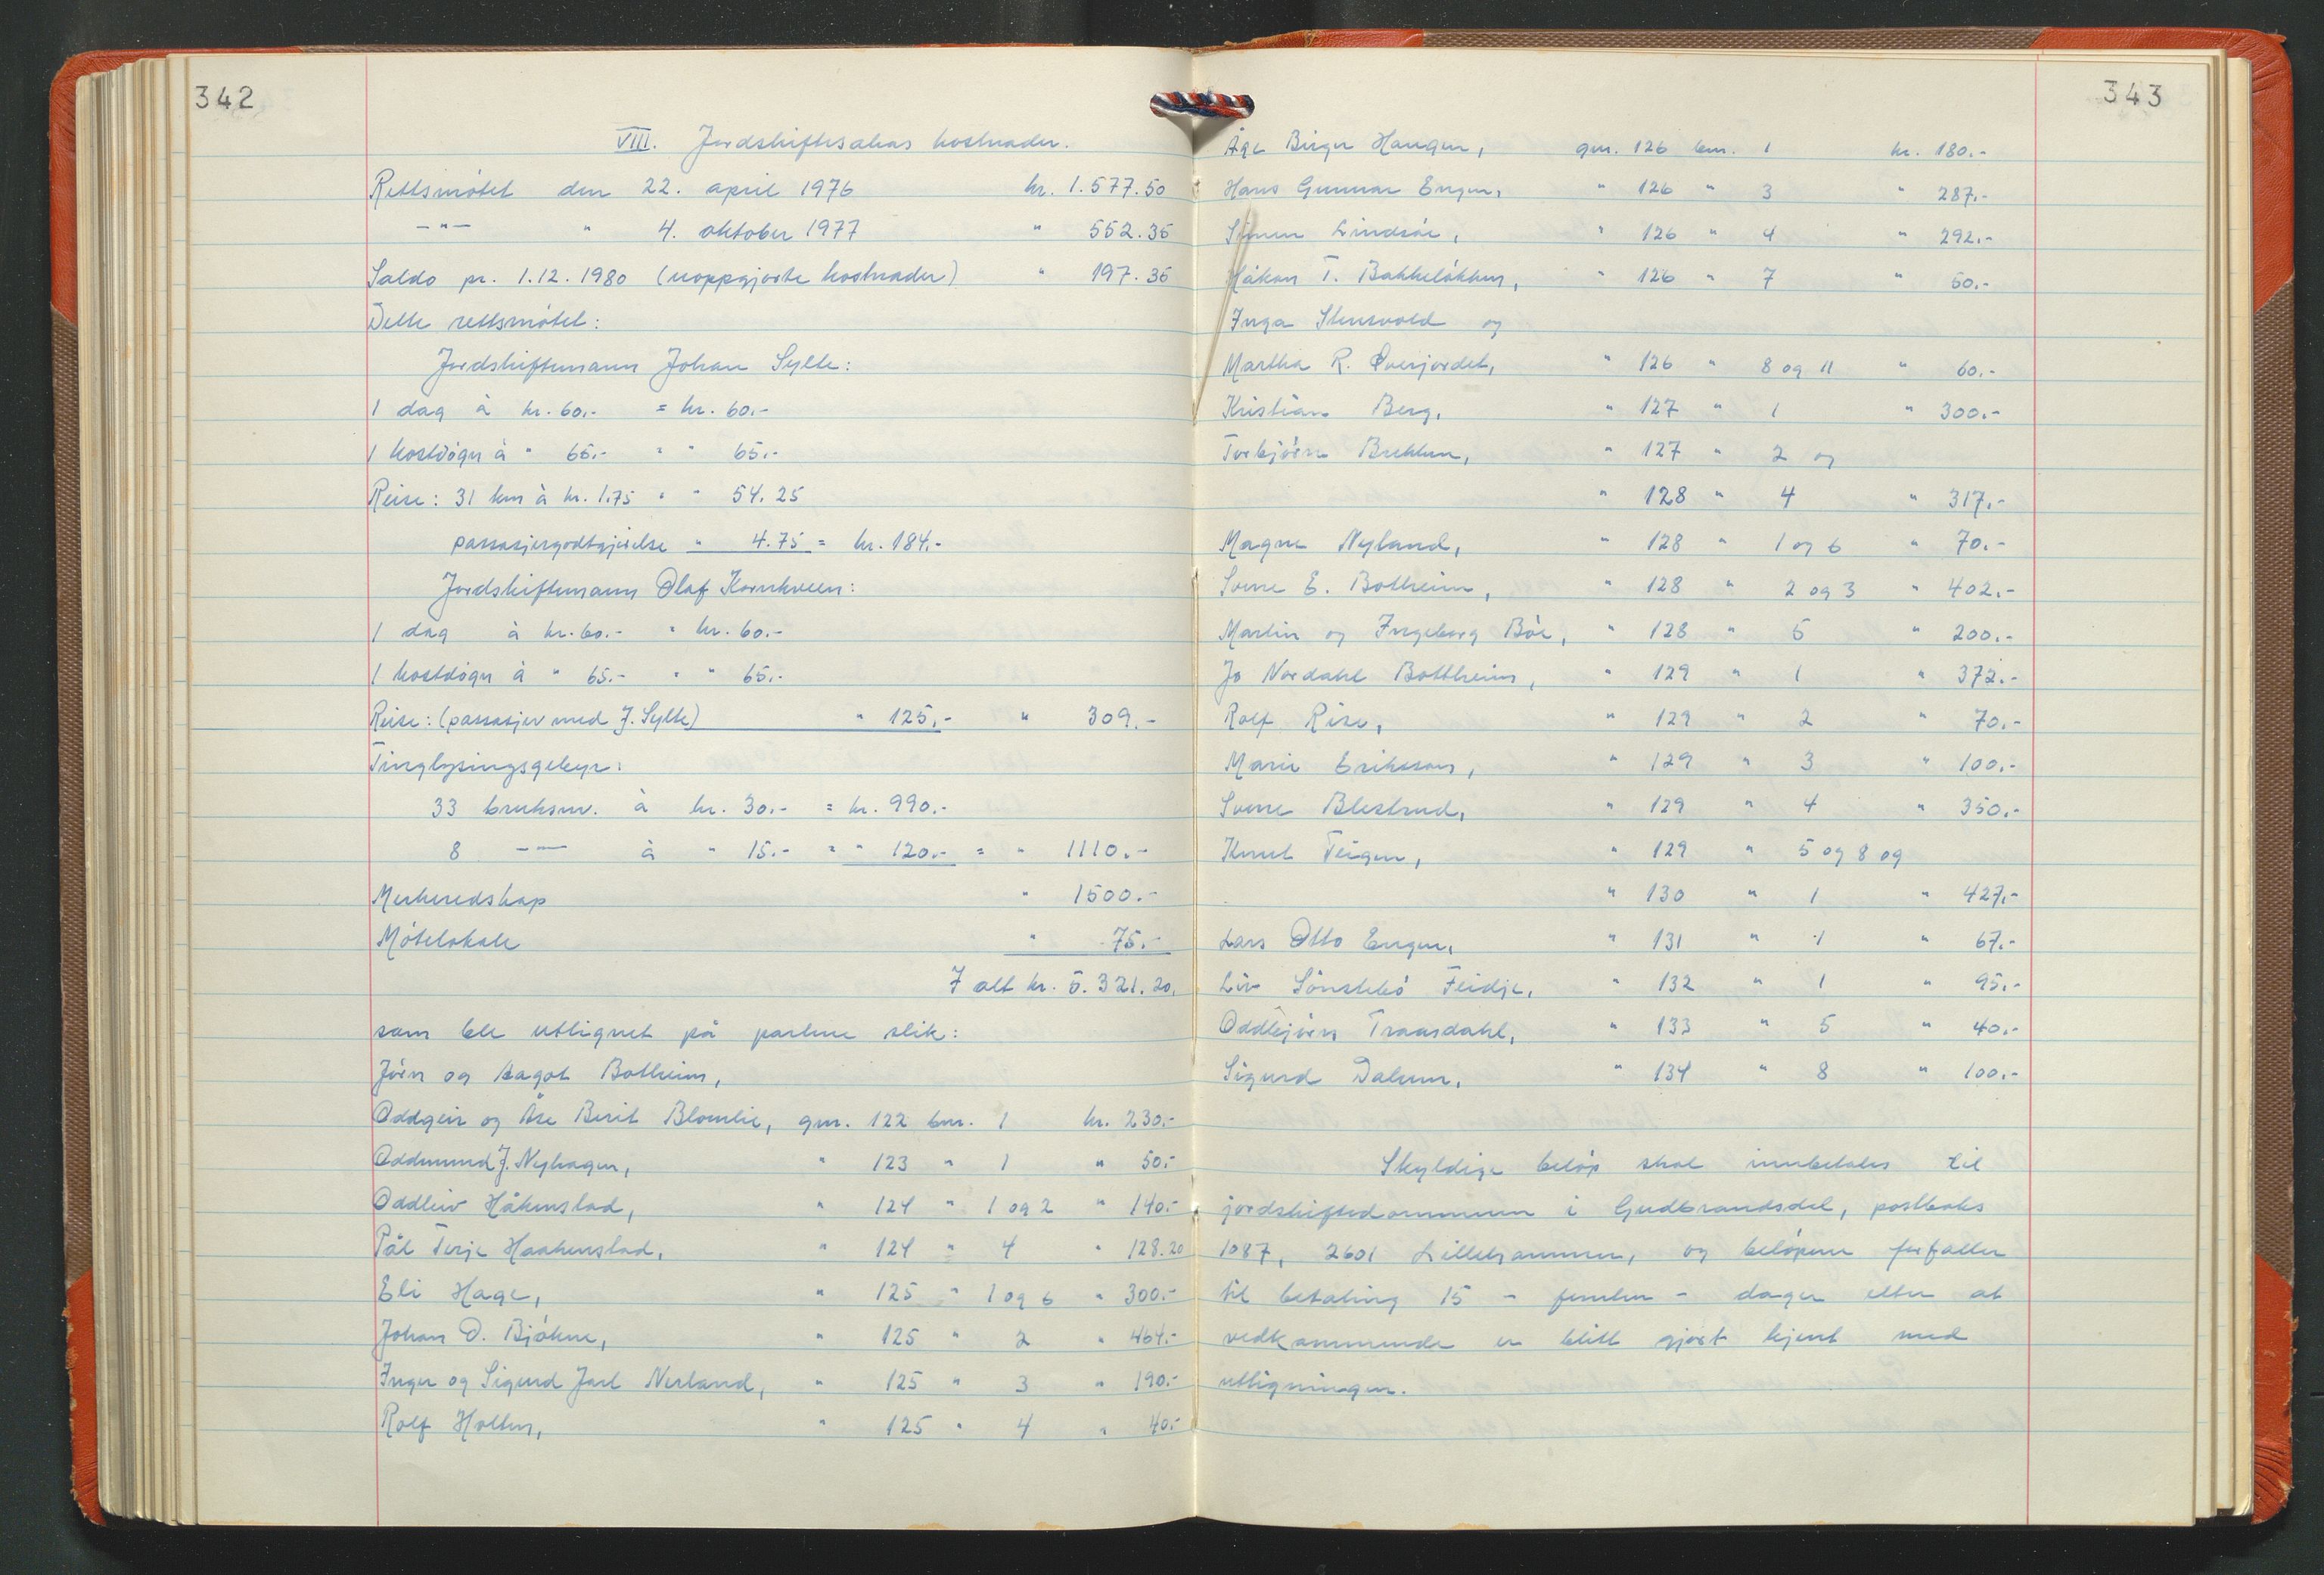 342
VIII. Jordskiftesakas kostnader.
Rettsmötet den 22. april 1976 kr. 1.577.50
—"— " 4. oktober 1977 " 552.35
Saldo pr. 1.12.1980 (uoppgjorte kostnader) " 197.35
Dette rettsmötet:
Jordskiftemann Johan Sylte:
1 dag à kr. 60.- = kr. 60.-
1 kostdögn à " 65.- = " 65.-
Reise: 31 km à kr. 1.75 = " 54.25
passasjergodtgjörelse " 4.75 = kr. 184.-
Jordskiftemann Olaf Kornkveen:
1 dag à kr. 60.- = kr. 60.-
1 kostdögn à " 65.- = " 65.-
Reise: (passasjer med J. Sylte) " 125.- " 309.-
Tinglysingsgebyr:
33 bruksnr. à kr. 30.- = kr. 990.-
8 —"— à " 15.- = " 120.- = " 1110.-
Merkeredskap " 1500.-
Mötelokale " 75.-
I alt kr. 5.321.20,
som ble utlignet på partene slik:
Jörn og Dagot Botheim,
Oddgeir og Åse Berit Blomlie, gnr. 122 bnr. 1 kr. 230.-
Oddmund J. Nyhagen, " 123 " 1 " 50.-
Oddleiv Håkenstad, " 124 " 1 og 2 " 140.-
Pål Terje Haakenstad, " 124 " 4 " 128.20
Eli Hage, " 125 " 1 og 6 " 300.-
Johan O. Bjökne, " 125 " 2 " 464.-
Inger og Sigurd Jarl Nerland, " 125 " 3 " 190.-
Rolf Holten, " 125 " 4 " 40.-
343
Åge Birger Haugen, gnr. 126 bnr. 1 kr. 180.-
Hans Gunnar Enger, " 126 " 3 " 287.-
Simen Lindsöe, " 126 " 4 " 292.-
Håkon T. Bakkelökken, " 126 " 7 " 50.-
Inga Stensvold og
Martha R. Överjordet, " 126 " 8 og 11 " 60.-
Kristian Berg, " 127 " 1 " 300.-
Torbjörn Brekken, " 127 " 2 og
" 128 " 4 " 317.-
Magne Nyland, " 128 " 1 og 6 " 70.-
Sverre E. Botheim, " 128 " 2 og 3 " 402.-
Martin og Ingeborg Böe, " 128 " 5 " 200.-
Jo Nordahl Bottheim, " 129 " 1 " 372.-
Rolf Rise, " 129 " 2 " 70.-
Marie Eriksson, " 129 " 3 " 100.-
Sverre Blestrud, " 129 " 4 " 350.-
Knut Teigen, " 129 " 5 og 8 og
" 130 " 1 " 427.-
Lars Otto Engen, " 131 " 1 " 67.-
Liv Sönstebö Feidje, " 132 " 1 " 95.-
Oddbjörn Traasdahl, " 133 " 5 " 40.-
Sigurd Dalum, " 134 " 8 " 100.-
Skyldige belöp skal innbetales til
jordskiftedommeren i Gudbrandsdal, postboks
1087, 2601 Lillehammer, og belöpene forfaller
til betaling 15 - femten - dager etter at
vedkommende er blitt gjort kjent med
utligningen.